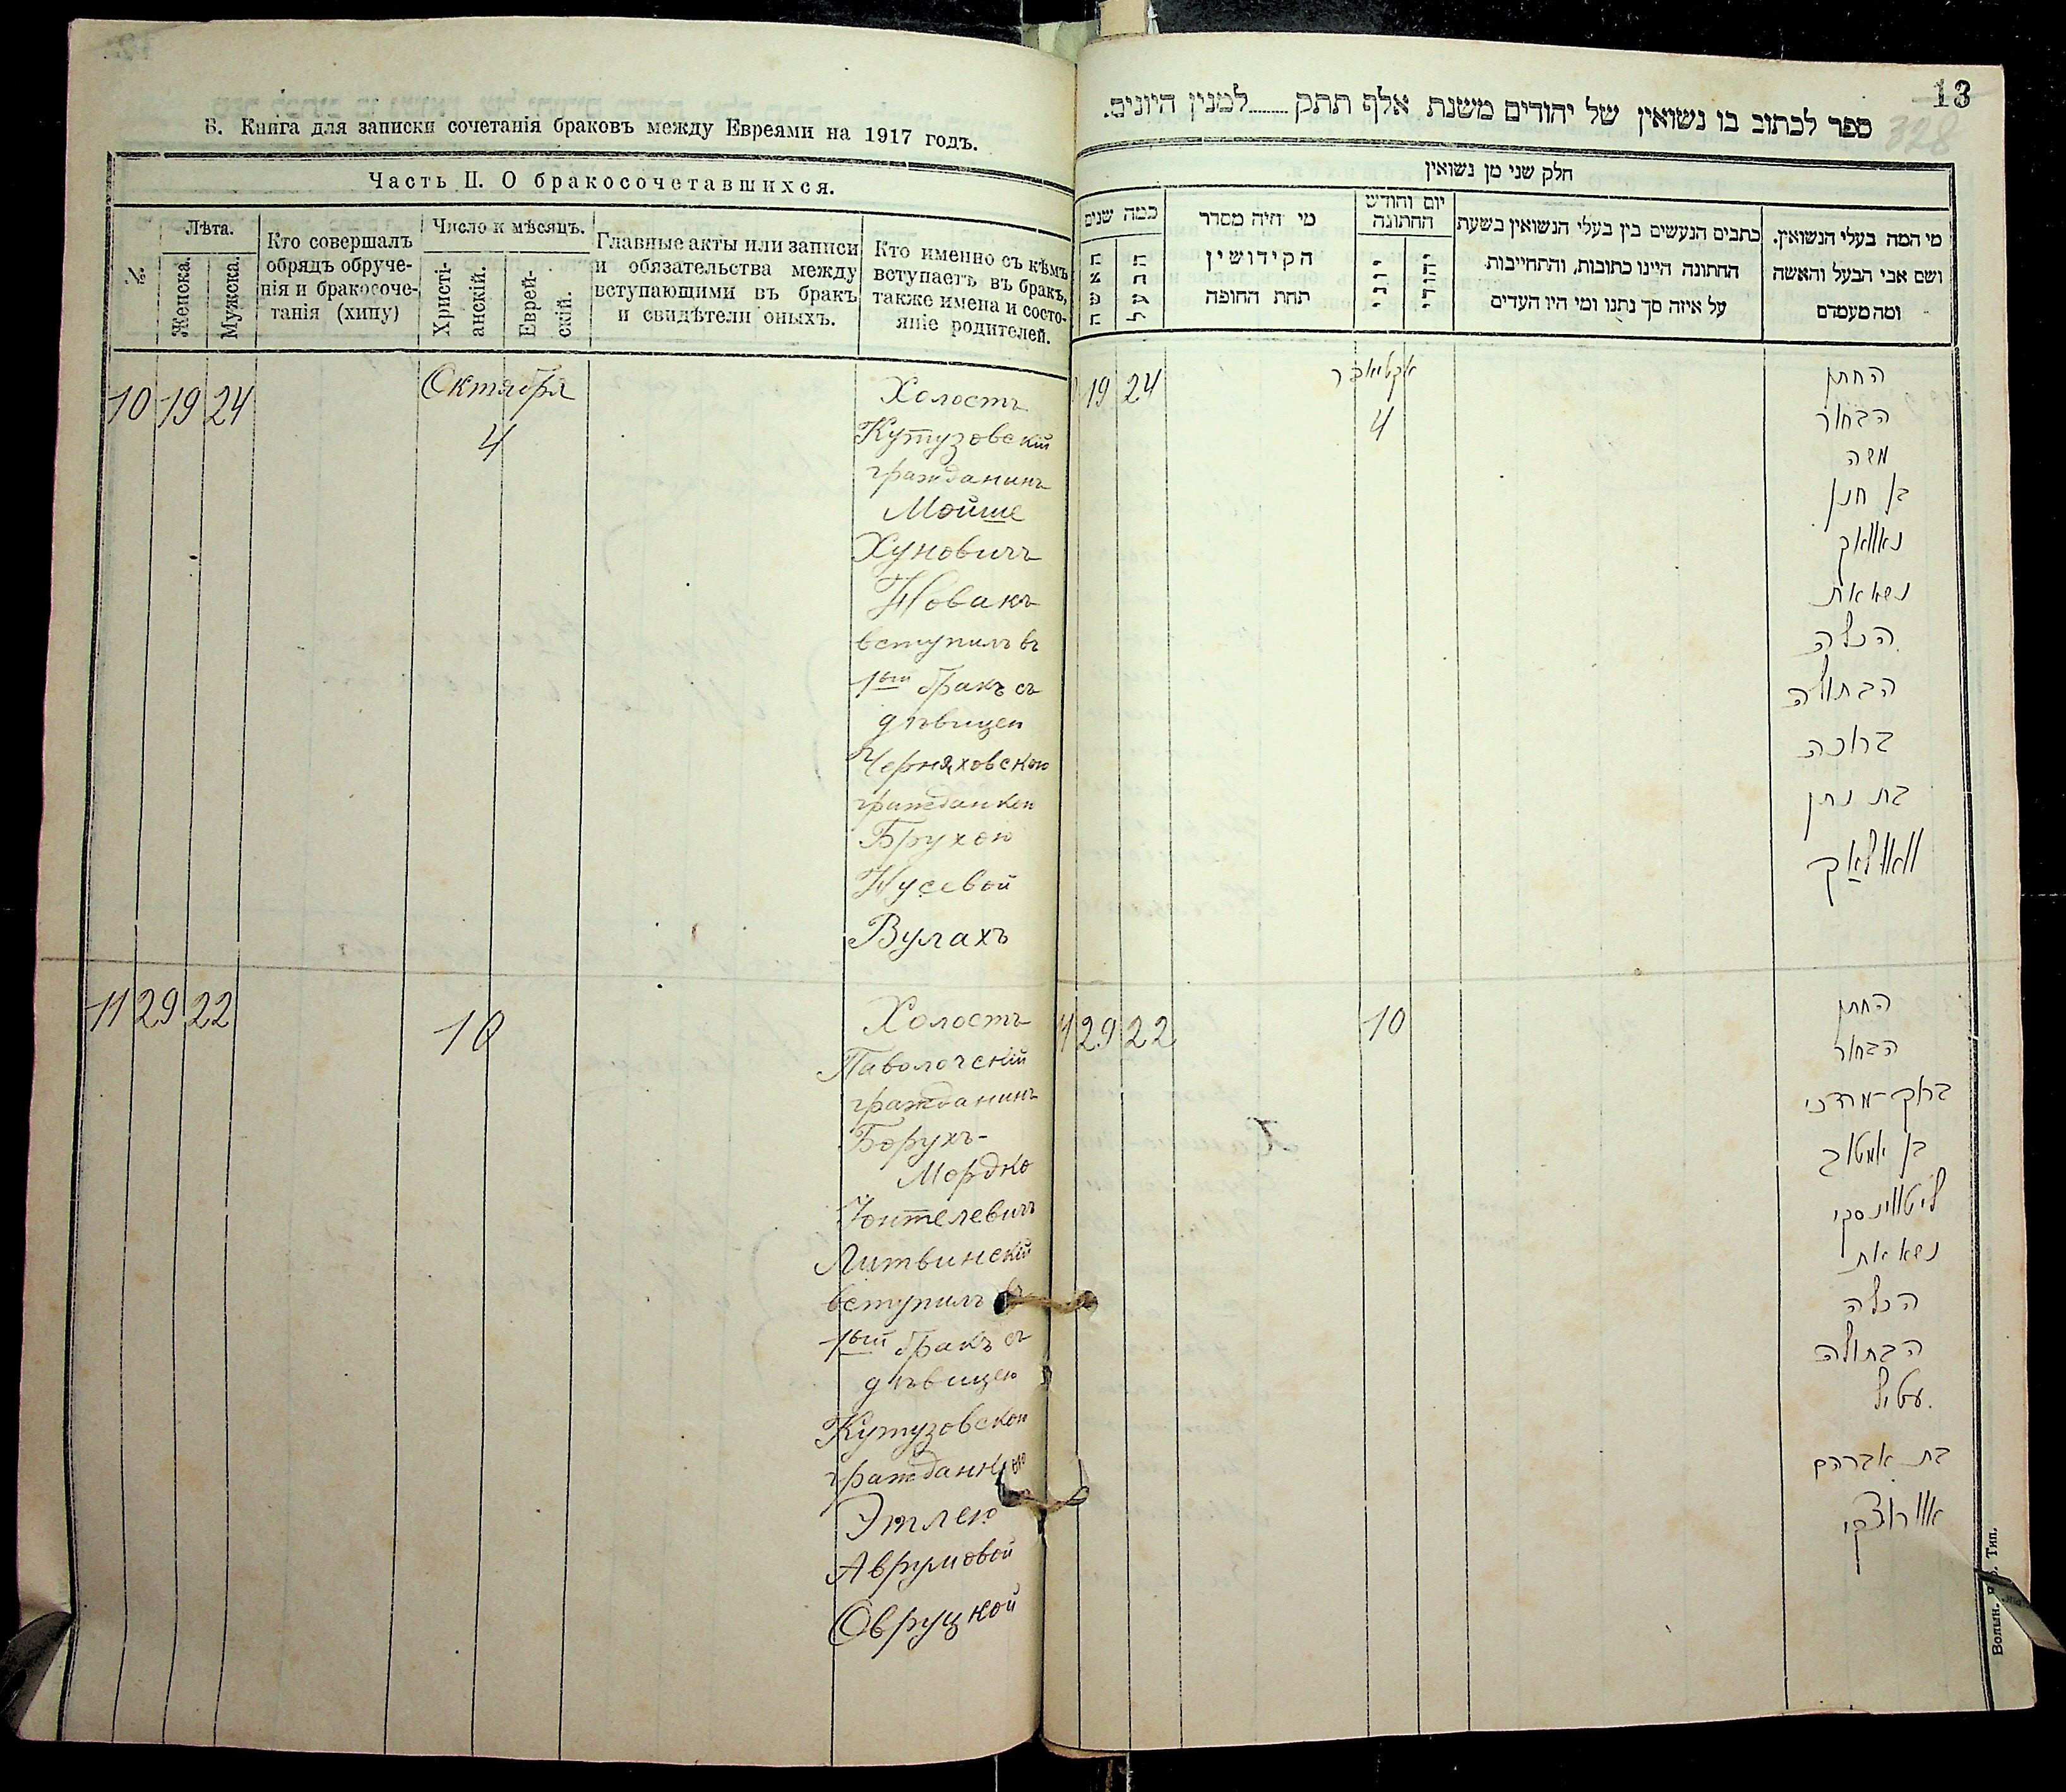 В. Книга для записки сочетанія браковъ между Евреями на 1917 годъ.
Часть II. О бракосочетавшихся.
№.
Лѣта.
Женска.
Мужска.
Кто совершалъ
обрядъ обруче-
нія и бракосоче-
танія (хипу)
Число и мѣсяцъ.
Христі-
анскій.
Еврей-
скій.
Главные акты или записи
и обязательства между
вступающими въ бракъ
и свидѣтели оныхъ.
Кто именно съ кѣмъ
вступаетъ въ бракъ,
также имена и состо-
яніе родителей.
10 19 24
Октября
4
Холостъ
Кутузовскій
гражданинъ
Мойше
Хуновичъ
Новакъ
вступилъ въ
1ый бракъ съ
дѣвицей
Черняховскою
гражданкой
Брухою
Нусевой
Вулахъ
11 29 22
10
Холостъ
Паволочскій
гражданинъ
Борухъ-
Мордко
Юнтелевичъ
Литвинскій
вступилъ
1ый бракъ съ
дѣвицею
Кутузовской
гражданкою
Этлею
Аврумовой
Овруцкой
13
328
ספר לכתוב בו נשואין של יהודים משנת אלף תתק........למנין היונים.
חלק שני מן נשואין
כמה שנים
האשה
הבעל
מי היה מסדר
הקידושין
תחת החופה
יום וחודש
החתונה
יוני
יהודי
כתבים הנעשים בין בעלי הנשואין בשעת
החתונה היינו כתובות, והתחייבות
על איזה סך נתנו ומי היו העדים
מי המה בעלי הנשואין.
ושם אבי הבעל והאשה
ומה מעמדם
19 24
אקטאבר
4
החתן
הבחור
משה
בן חנן
נאוואק
נשא את
הכלה
הבתולה
ברוכה
בת נתן
וואולאך
29 22
10
החתן
הבחור
ברוך-מרדכי
בן יומטוב
ליטווינסקי
נשא את
הכלה
הבתולה
עטיל
בת אברהם
אוורוצקי
Волын. Губ. Тип.